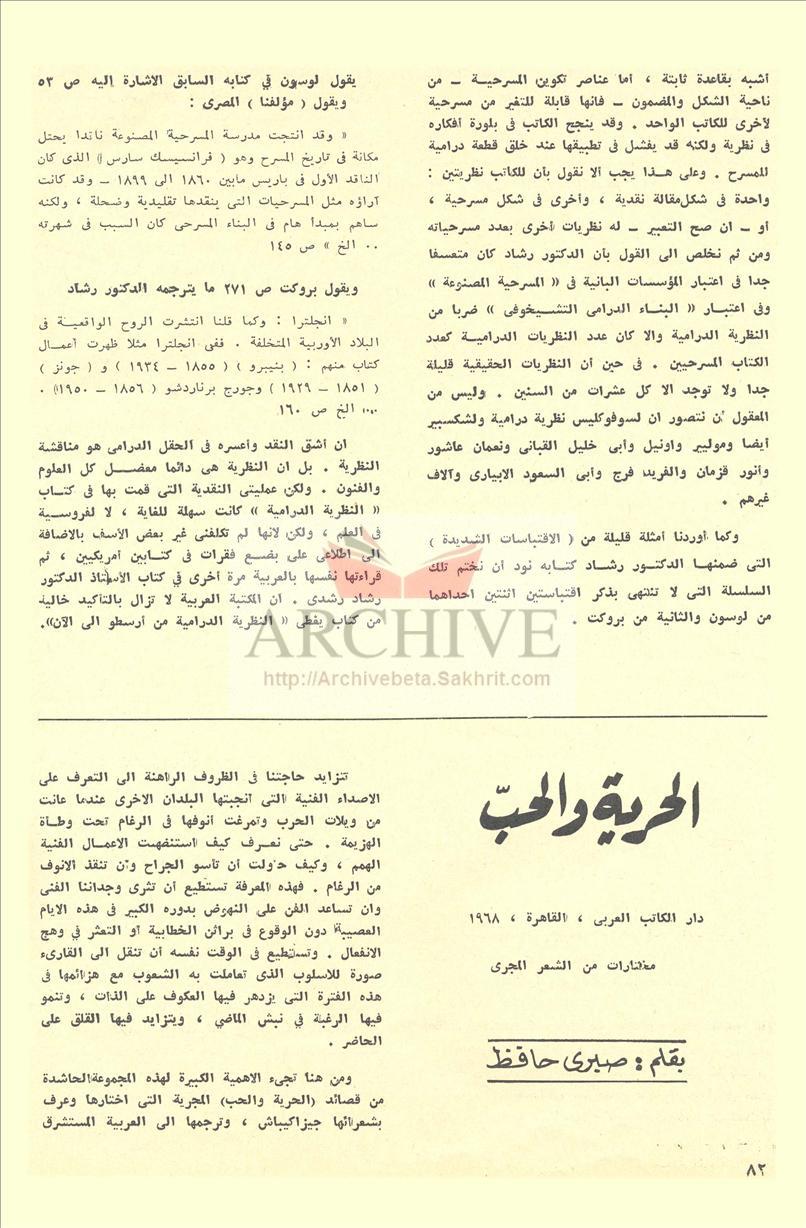 أشبه بقاعدة ثابتة ، أما عناصر تكوين المسرحيــة ـ من
ناحية الشكل والمضمون ـ فانها قابلة للتغير من مسرحية
لأخرى للكاتب الواحد . وقد ينجح الكاتب فى بلورة أفكاره
فى نظرية ولكنه قد يفشل فى تطبيقها عند خلق قطعة درامية
للمسرح . وعلى هـذا يجب ألا نقول بأن للكاتب نظريتين :
واحدة فى شكل مقالة نقدية ، وأخرى فى شكل مسرحية ،
أو ـ ان صح التعبير ـ له نظريات أخرى بعدد مسرحياته
ومن ثم نخلص الى القول بأن الدكتور رشاد كان متعسفا
جدا فى اعتبار المؤسسات البانية فى « المسرحية المصنوعة »
وفى اعتبـار « البناء الدرامى التشـيخوفى » ضربا من
النظرية الدرامية والا كان عدد النظريات الدراميـة كعدد
الكتاب المسرحيين . فى حين أن النظريات الحقيقية قليلة
جدا ولا توجد الا كل عشرات من السنين . وليس من
المعقول أن نتصور ان لسوفوكليس نظرية درامية ولشكسبير
أيضا وموليير واونيل وأبى خليل القبانى ونعمان عاشور
وأنور قزمان والفريد فرج وأبى السعود الابيارى وآلاف
غيرهم .
وكما أوردنا أمثلة قليلة من ( الاقتباسات الشديدة )
التى ضمنهـا الدكتـور رشـاد كتـابه نود أن نختم تلك
السلسلة التى لا تنتهى بذكر اقتباستين اثنتين احداهما
من لوسون والثانية من بروكت .
يقول لوسون فى كتابه السابق الاشارة اليه ص ٥٣
ويقول ( مؤلفنا ) المصرى :
« وقد انتجت مدرسة المسرحية المصنوعة ناقدا يحتل
مكانة فى تاريخ المسرح وهو ( فرانسيسك سارس ) الذى كان
الناقد الأول فى باريس مابين ١٨٦٠ الى ١٨٩٩ ـ وقد كانت
آراؤه مثل المسرحيات التى ينقدها تقليدية وضحلة ، ولكنه
ساهم بمبدأ هام فى البناء المسرحى كان السبب فى شهرته
٠٠ الخ » ص ١٤٥
ويقول بروكت ص ٢٧١ ما يترجمه الدكتور رشاد
« انجلترا : وكما قلنا انتشرت الروح الواقعيـة فى
البلاد الأوربية المتخلفة . ففى انجلترا مثلا ظهرت أعمـال
كتاب منهم : ( بنيرو ) ( ١٨٥٥ ـ ١٩٣٤ ) و ( جونز )
( ١٨٥١ ـ ١٩٢٩ ) وجورج برناردشو ( ١٨٥٦ ـ ١٩٥٠) .
... الخ ص ١٦٠
ان أشق النقد وأعسره فى الحقل الدرامى هو مناقشة
النظرية . بل ان النظرية هى دائما معضـل كل العلوم
والفنون . ولكن عمليتى النقدية التى قمت بها فى كتـاب
« النظرية الدرامية » كانت سهلة للغاية ، لا لفروسـية
فى العلم ، ولكن لانها لم تكلفنى غير بعض الأسف بالاضافة
الى اطلاعى على بضـع فقرات فى كتـابين أمريكيين ، ثم
قراءتها نفسها بالعربية مرة أخرى فى كتاب الأستاذ الدكتور
رشاد رشدى . ان المكتبة العربية لا تزال بالتأكيد خالية
من كتاب يغطى « النظرية الدرامية من أرسطو الى الآن».
ARCHIVE
http://Archivebeta.Sakhrit.com
الحرية والحبّ
دار الكاتب العربى ، القاهرة ، ١٩٦٨
مختارات من الشعر المجرى
بقلم : صبرى حافظ
تتزايد حاجتنا فى الظروف الراهنة الى التعرف على
الاصداء الفنية التى أنجبتها البلدان الاخرى عندما عانت
من ويلات الحرب وتمرغت أنوفها فى الرغام تحت وطـأة
الهزيمة . حتى نعـرف كيف استنهضت الاعمـال الفنية
الهمم ، وكيف حاولت أن تأسو الجراح وأن تنقذ الانوف
من الرغام . فهذه المعرفة تستطيع أن تثرى وجداننا الفنى
وان تساعد الفن على النهوض بدوره الكبير فى هذه الايام
العصيبة دون الوقوع فى براثن الخطابية أو التعثر فى وهج
الانفعال . وتستطيع فى الوقت نفسه أن تنقل الى القارىء
صورة للاسلوب الذى تعاملت به الشعوب مع هزائمها فى
هذه الفترة التى يزدهر فيها العكوف على الذات ، وتنمو
فيها الرغبة فى نبش الماضي ، ويتزايد فيها القلق على
الحاضر .
ومن هنا تجىء الاهمية الكبيرة لهذه المجموعة الحاشدة
من قصائد (الحرية والحب) المجرية التى اختارها وعرف
بشعرائها جيزاكيباش ، وترجمها الى العربية المستشرق
٨٢